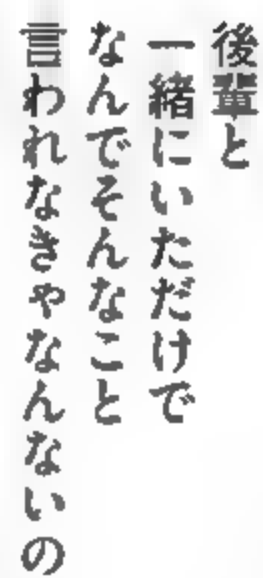 後輩と
一緒にいただけで
なんでそんなこと
言われなきゃなんないの